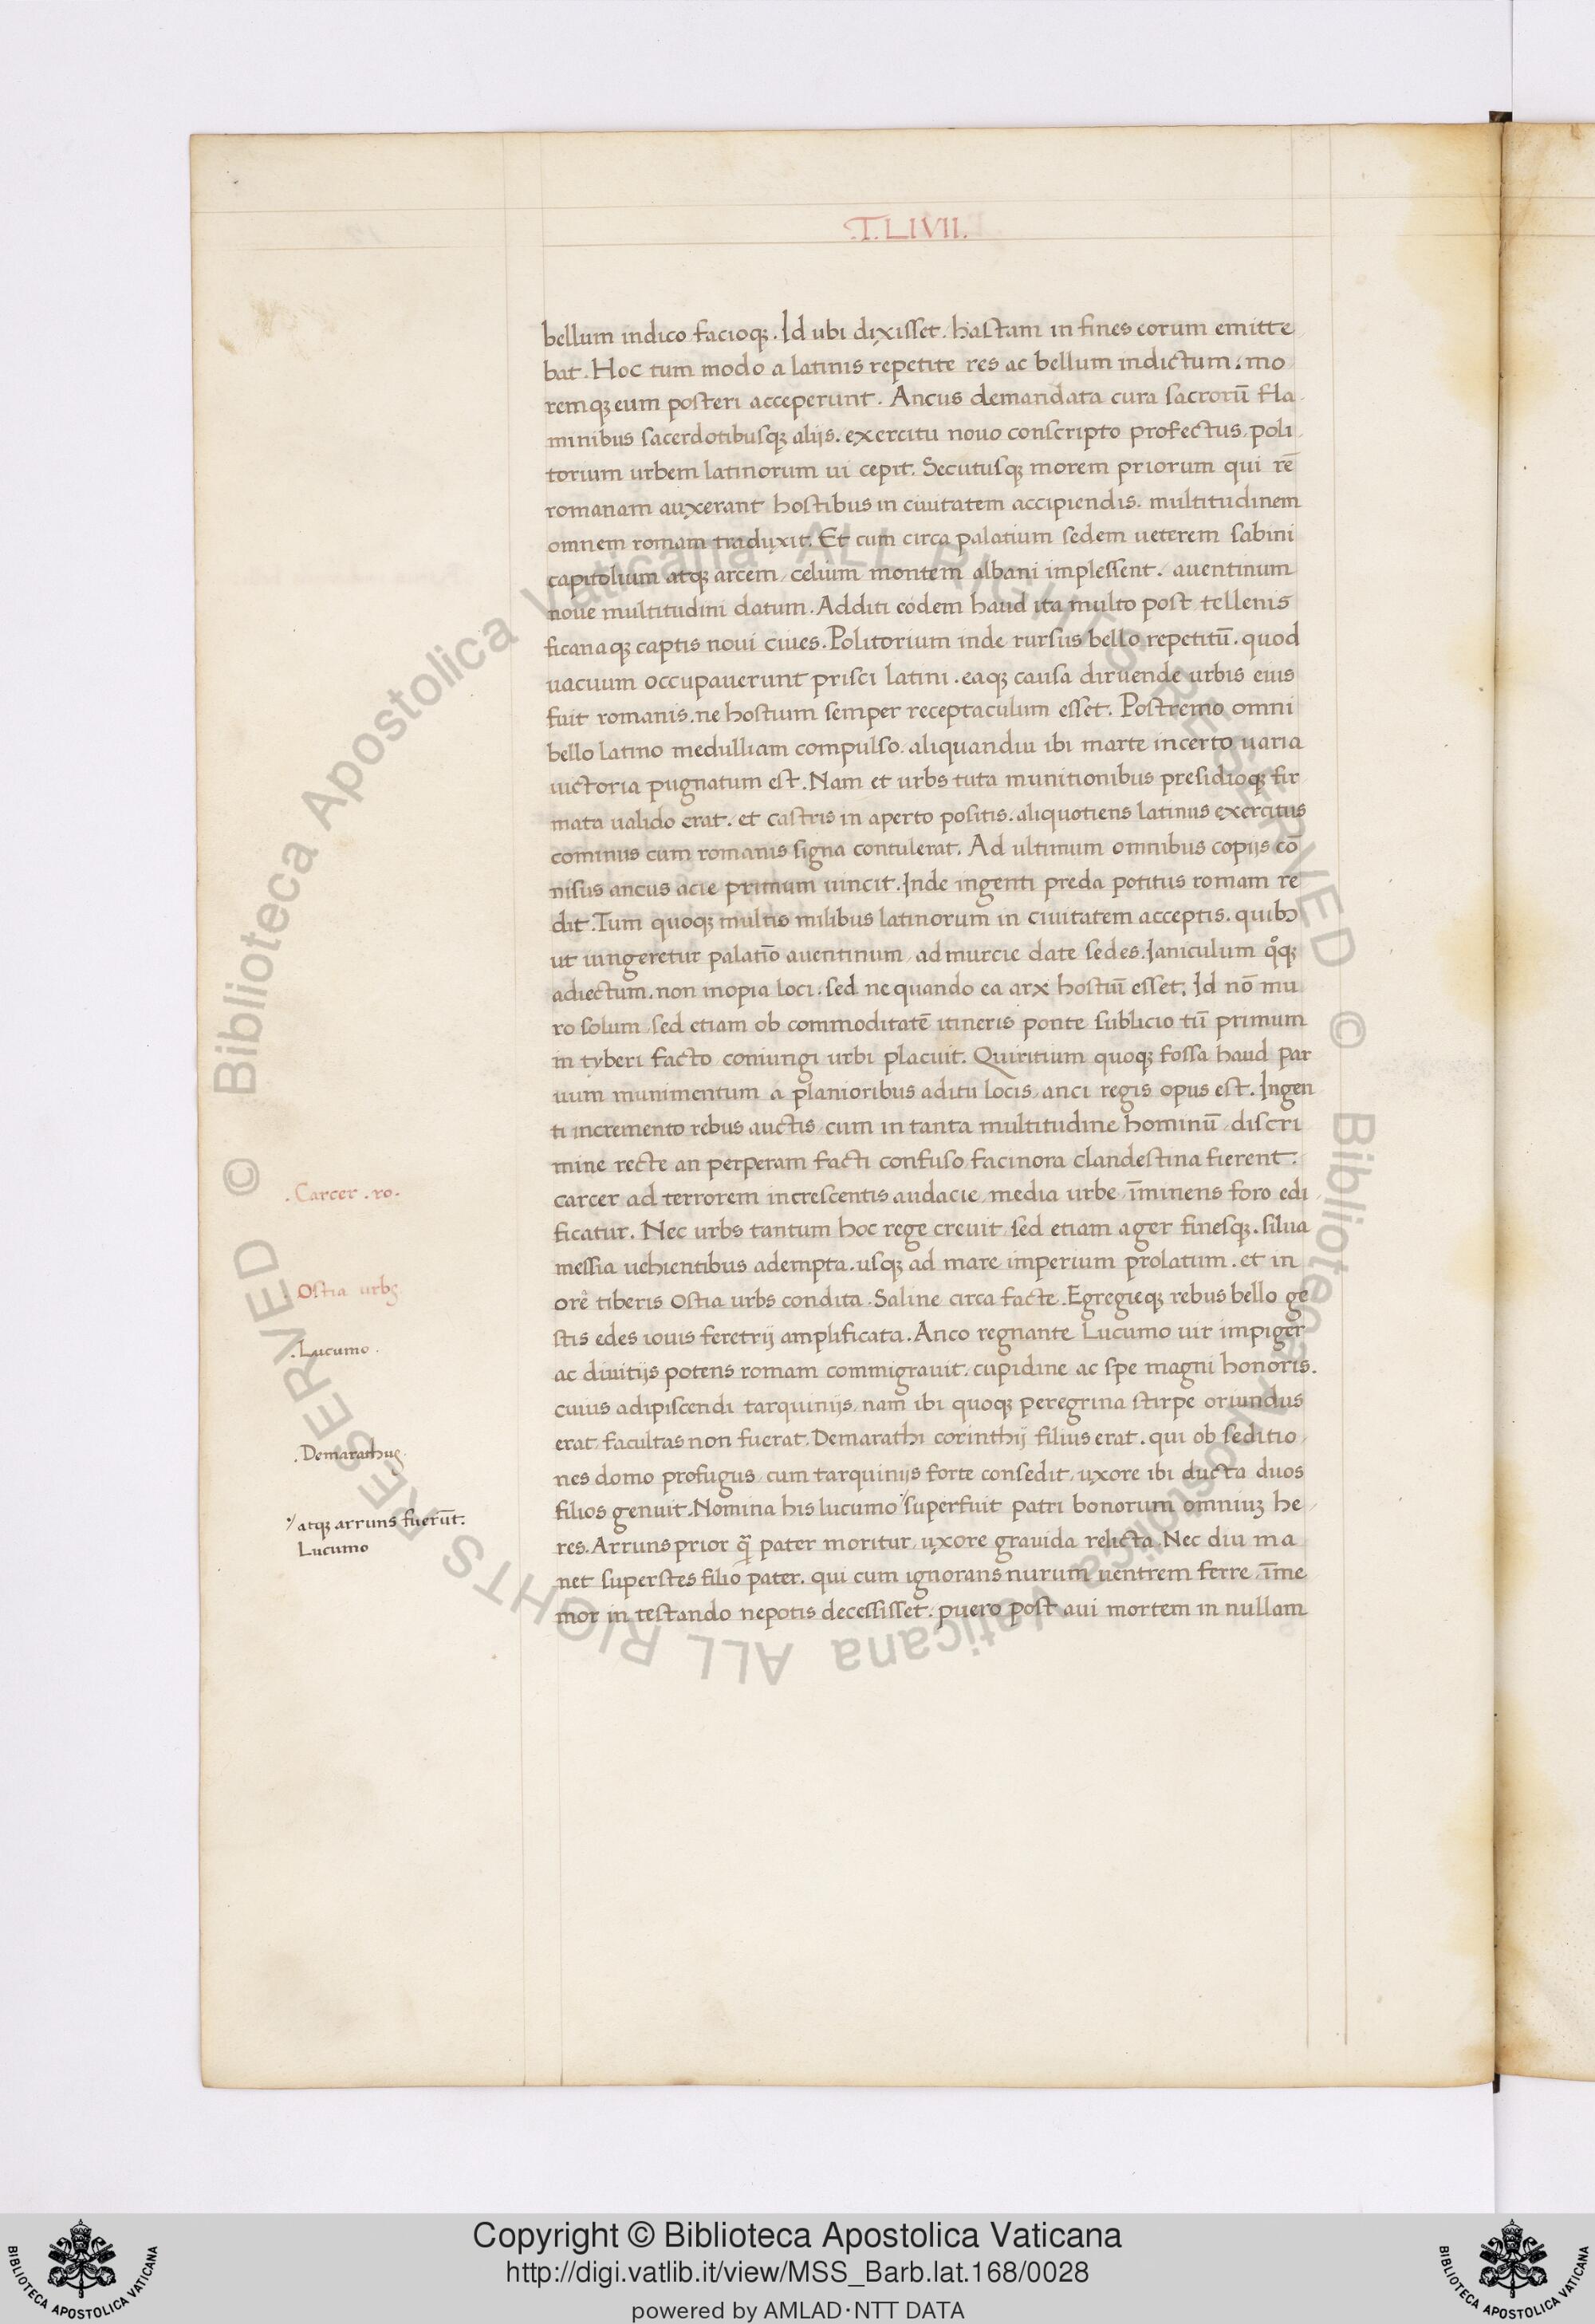 .T. LIVII.
bellum indico facioq̃. Id ubi dixisset. hastam in fines eorum emitte
bat. Hoc tum modo a latinis repetite res ac bellum indictum. mo
remq̃ eum posteri acceperunt. Ancus demandata cura sacrorū fla
minibus sacerdotibusq̃ alijs. exercitu nouo conscripto profectus. poli
torium urbem latinorum ui cepit. Secutusq̃ morem priorum qui rē
romanam auxerant hostibus in ciuitatem accipiendis. multitudinem
omnem romam traduxit. Et cum circa palatium sedem ueterem sabini
capitolium atq̃ arcem, celium montem albani implessent. auentinum
noue multitudini datum. Additi eodem haud ita multo post tellenis
ficanaq̃ captis noui ciues. Politorium inde rursus bello repetitū. quod
uacuum occupauerunt prisci latini. eaq̃ causa diruende urbis eius
fuit romanis. ne hostium semper receptaculum esset. Postremo omni
bello latino medulliam compulso. aliquandiu ibi marte incerto uaria
uictoria pugnatum est. Nam et urbs tuta munitionibus presidioq̃ fir
mata ualido erat. et castris in aperto positis. aliquotiens latinus exercitus
cominus cum romanis signa contulerat. Ad ultimum omnibus copijs cō
nisus ancus acie primum uincit. Inde ingenti preda potitus romam re
dit. Tum quoq̃ multis milibus latinorum in ciuitatem acceptis. quibꝫ
ut iungeretur palatio auentinum, ad murcie date sedes. Ianiculum qͦq̃
adiectum. non inopia loci. sed ne quando ea arx hostiū esset. Id nō mu
ro solum, sed etiam ob commoditatē itineris ponte sublicio tū primum
in tyberi facto coniungi urbi placuit. Quiritium quoq̃ fossa haud par
uum munimentum a planioribus aditu locis, anci regis opus est. Ingen
ti incremento rebus auctis, cum in tanta multitudine hominū, discri
mine recte an perperam facti confuso, facinora clandestina fierent.
carcer ad terrorem increscentis audacie, media urbe, īminens foro edi
ficatur. Nec urbs tantum hoc rege creuit, sed etiam ager finesq̃. silua
messia uehientibus adempta. usq̃ ad mare imperium prolatum. et in
ore tiberis Ostia urbs condita. Saline circa facte. Egregieq̃ rebus bello ge
stis edes iouis feretrij amplificata. Anco regnante Lucumo uir impiger
ac diuitijs potens romam commigrauit. cupidine ac spe magni honoris.
cuius adipiscendi tarquinijs, nam ibi quoq̃ peregrina stirpe oriundus
erat, facultas non fuerat. Demarathi corinthij filius erat. qui ob seditio
nes domo profugus, cum tarquinijs forte consedit, uxore ibi ducta duos
filios genuit. Nomina his lucumo superfuit patri bonorum omniuꝫ he
res. Arruns prior q̃ pater moritur, uxore grauida relicta. Nec diu ma
net superstes filio pater. qui cum ignorans nurum uentrem ferre, īme
mor in testando nepotis decessisset. puero post aui mortem in nullam
.Carcer .ro.
.Ostia urbs.
.Lucumo.
.Demarathus.
atq̃ arruns fuerūt.
Lucumo
© Biblioteca Apostolica Vaticana ALL RIGHTS RESERVED
© Biblioteca Apostolica Vaticana ALL RIGHTS RESERVED
Copyright © Biblioteca Apostolica Vaticana
http://digi.vatlib.it/view/MSS_Barb.lat.168/0028
powered by AMLAD·NTT DATA
BIBLIOTECA APOSTOLICA VATICANA
BIBLIOTECA APOSTOLICA VATICANA